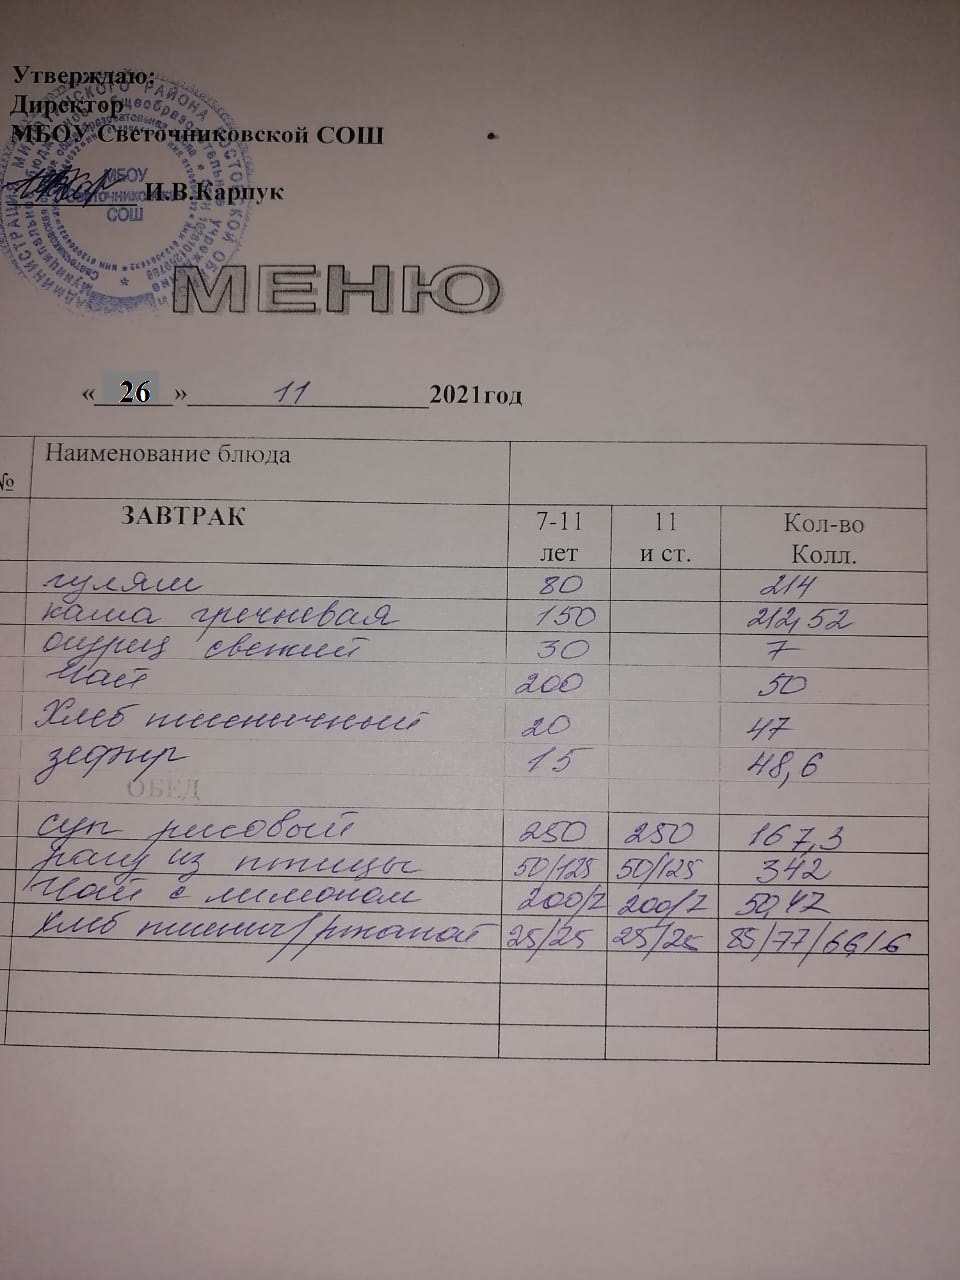 Утверждаю:
Директор
МБОУ Светочниковской СОШ
И.В.Карпук
МБОУ
СОШ
МЕНЮ
« 26 » 11 2021год
№ Наименование блюда
ЗАВТРАК 7-11 лет 11 и ст. Кол-во Колл.
гуляш 80 214
каша гречневая 150 212,52
огурец свежий 30 7
Чай 200 50
Хлеб пшеничный 20 47
зефир 15 48,6
ОБЕД
суп рисовый 250 250 167,3
рагу из птицы 50/125 50/125 342
Чай с лимоном 200/7 200/7 50,47
Хлеб пшенич/ржаной 25/25 25/25 85/77/66/6